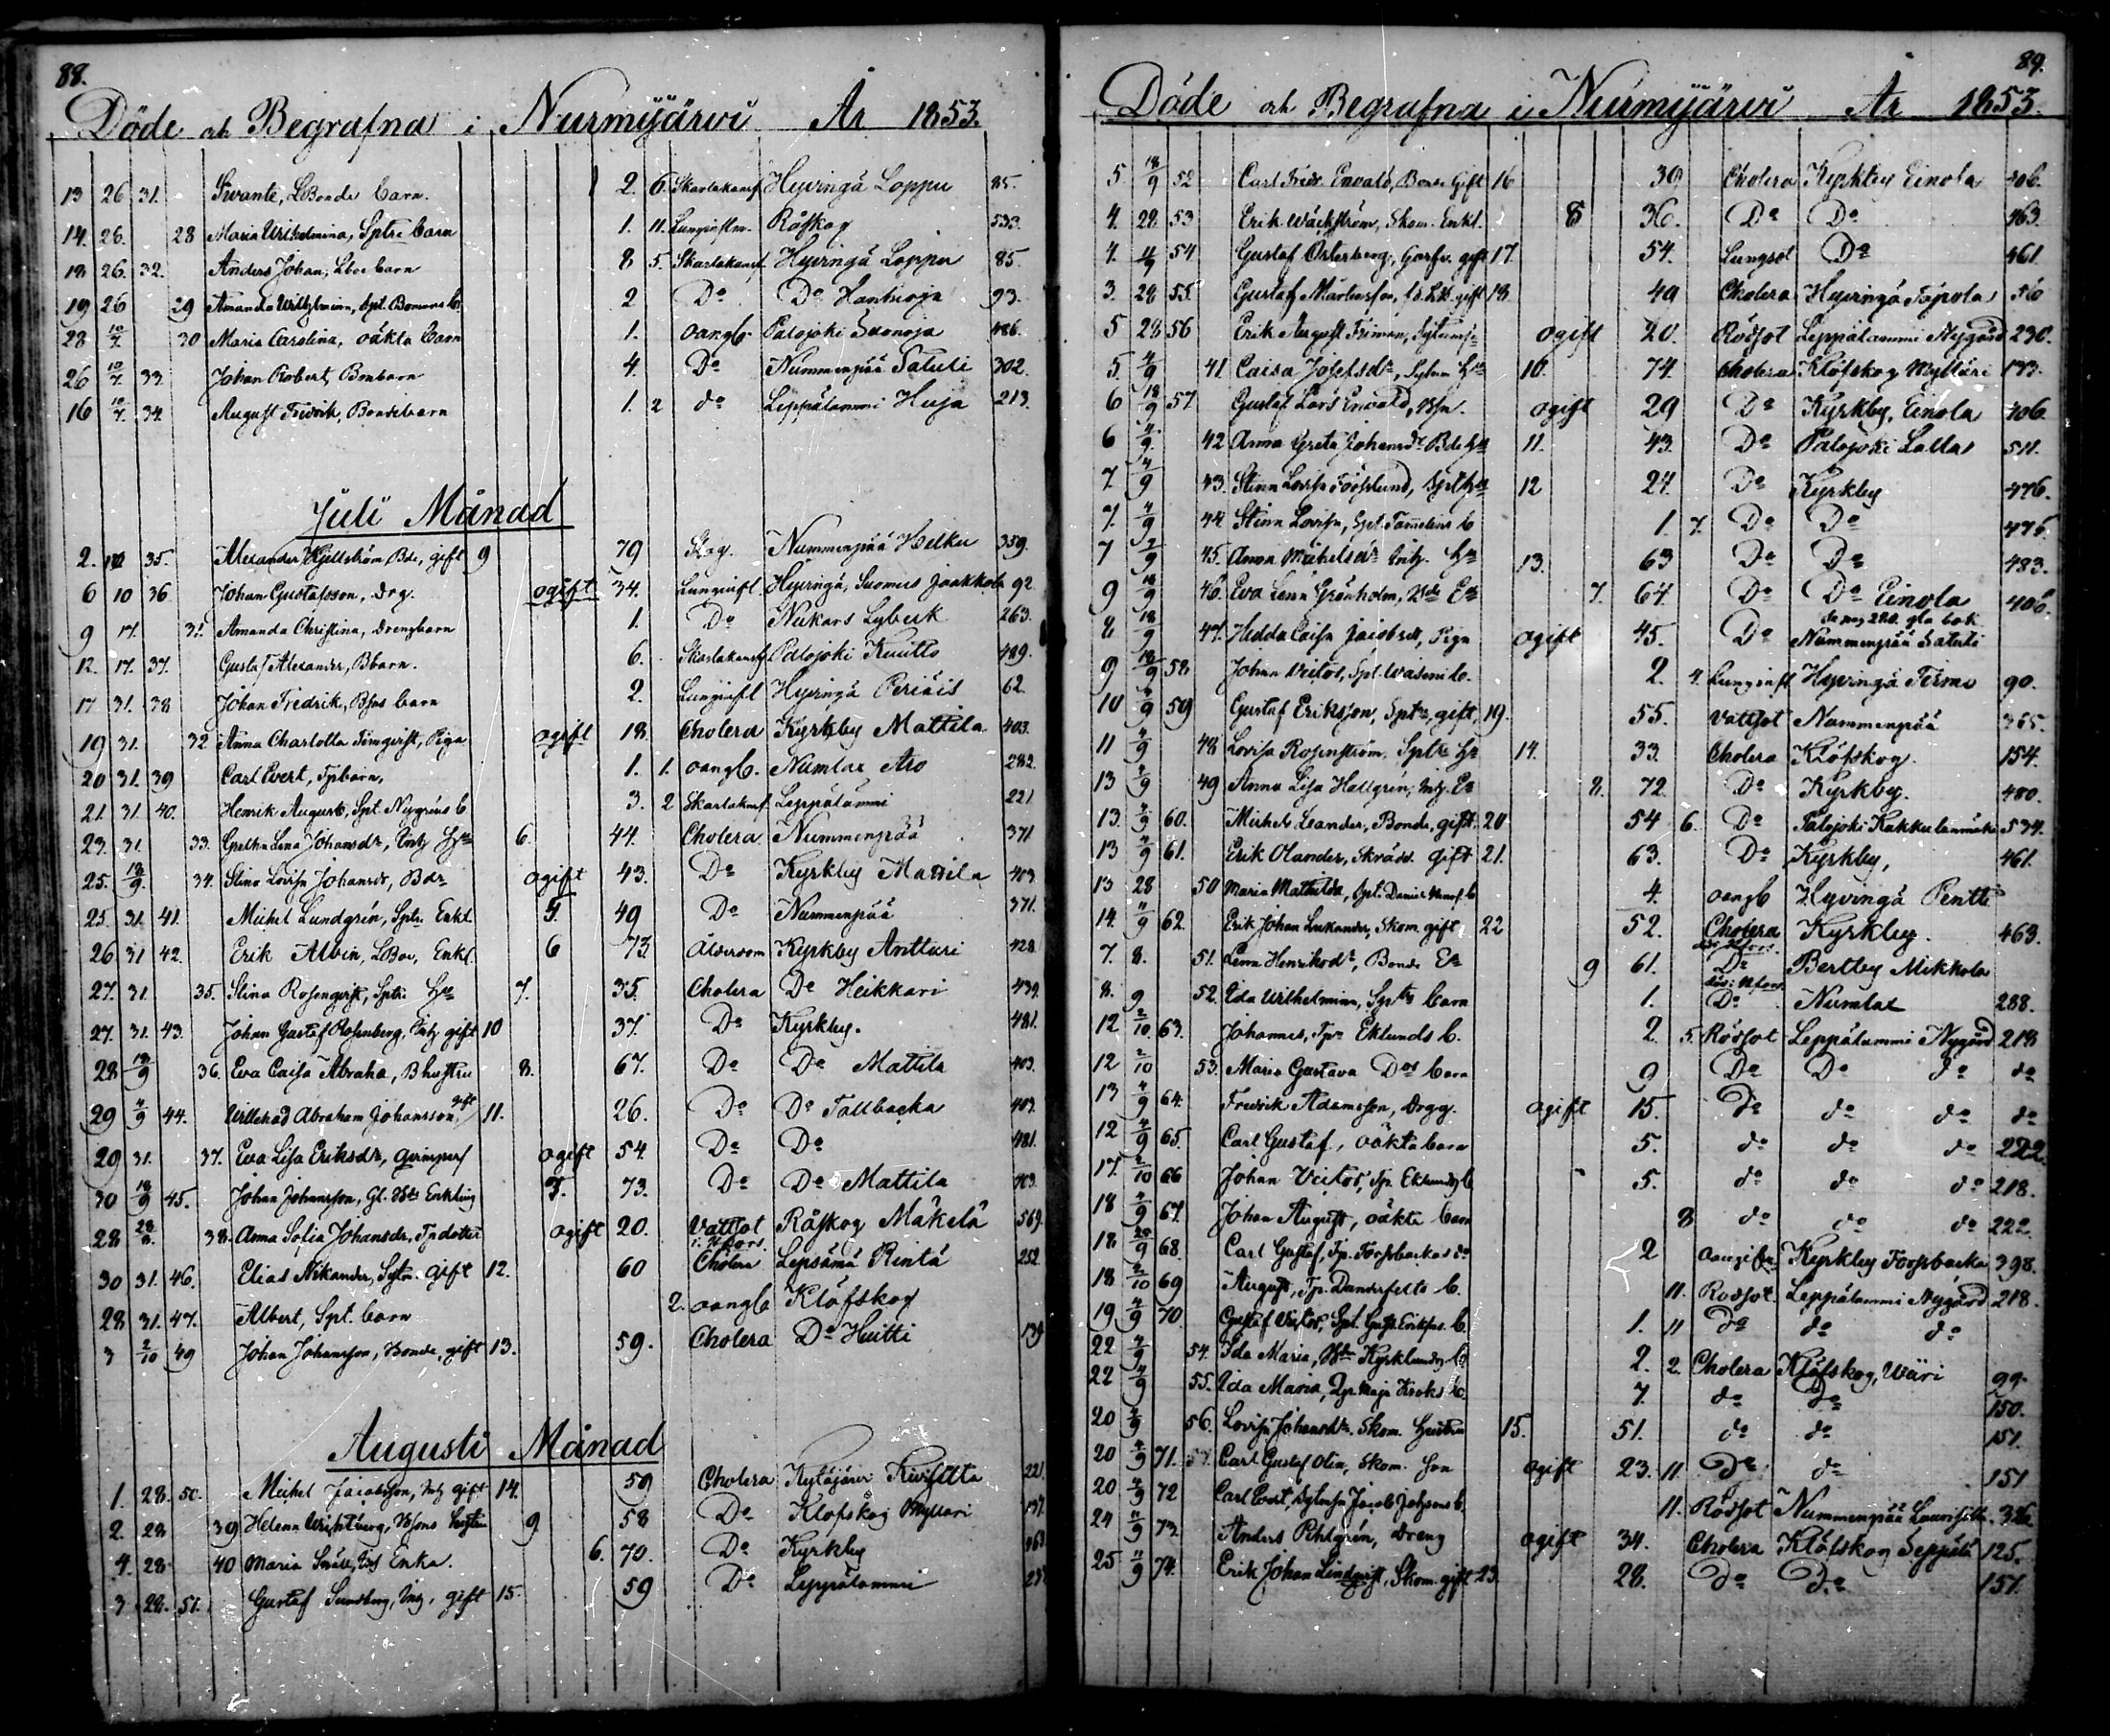 88.
Döde och Begrafna i Nurmijärvi År 1853.
13 26 31. Svante, LBonde barn. 2. 6. Skarlakansf Hyvingä Loppu 85.
14. 26. 28 Maria Wilhelmina, Sptre barn 1. 11. Lunginflm. Råskog 533.
18 26. 32. Anders Johan, Lboe barn 8 5. Skarlakansf. Hyvingä Loppu 85.
19 26 29 Amanda Wilhelmina, Spt. b. 2 Do Do 93.
28 10/7 30 Maria Carolina, oäkta barn 1. oangb. Palojoki 486.
26 10/7 33 Johan Robert, Bonbarn 4. Do Nummenpää Saluti 302.
16 10/7 34 August Fridrik, Bondebarn 1. 2 do Leppälammi Huja 213.
Juli Månad
2. 35. Alexander Kjellström Bde, gift 9 79 Slag. Nummenpää Heiku 359.
6 10 36 Johan Gustafsson, drg. ogift 34. Lunginfl. Hyvingä, Suomis Jaakkola 92
9 17. 31. Amanda Christina, drengbarn 1. Do Nukars Lybeck 263.
12. 17. 37. Gustaf Alexander, Bbarn. 6. Skarlakansf. Palojoki Knuitto 489.
17 31. 38 Johan Fredrik, Bsns barn 2. Lunginfl Hyvingä 62.
19 31. 32 Anna Charlotta, Piga ogift 18. Cholera Kyrkby Mattila 403.
20 31. 39 Carl Evert, Tpbarn, 1. 1. oangb. Numlax Aro 282.
21. 31. 40. Henrik August, Spt. Nygréns b 3. 2 Skarlaksf. Leppälammi 221
23. 31. 33. Gretha Lena Johansdr, Inh Hu 6. 44. Cholera Nummenpää 371
25. 18/9. 34. Stina Lovisa Johansdr, Bdr ogift 43. Do Kyrkby Mattila 403.
25. 31. 41. Michel Lundgrén, Sptr. Enkl 5. 49 Do Nummenpää 371.
26 31 42. Erik Albin, LBoe, Enkl. 6 73. Ålderdom Kyrkby Antturi 428
27. 31. 35. Stina Rosengvist, Sptre Hu 7. 35. Cholera Do Heikkari 439.
27. 31. 43. Johan Gustaf Rosenberg, Inh gift 10 37. Do Kyrkby. 481.
28 18/9 36. Eva Caisa Abraha, Bhustru 8. 67. Do Do Mattila 403.
29 4/9 44. Willehad Abraham Johansson gift 11. 26. Do Do Tallbacka 403.
29 31. 37. Eva Lisa Eriksdr, ogift 54. Do Do 481.
30 18/9 45. Johan Johansson, Gl. Enkling 7. 73. Do Do Mattila 403.
28 28/8. 38. Anna Sofia Johansdr, Tpdotter ogift 20. Vattsot Råskog Mäkelä 569.
30 31. 46. Elias Nikander, Sytn. gift 12. 60 i Hfors. Cholera Lepsämä Rintä 252.
28 31. 47. Albert, Spt. barn 2. oangb Klöfskog
3 2/10 49 Johan Johansson, Bonde, gift 13. 59. Cholera Do Huitti 139
Augusti Månad
1. 28. 50. Michel Jacobsson, Inh gift 14. 59 Cholera Kytäjärvi 221.
2. 28 39 Helena, Bsons hustru 9 58 Do Klöfskog Myllari 137.
4. 28 40 Maria, Inh Enka. 6. 70. Do Kyrkby
3 28. 51. Gustaf Sundberg, Inh, gift 15. 59 Do Leppälammi
89.
Döde och Begrafna i Nurmijärvi År 1853.
5. 18/9 52 Carl Fridr. Envald, Bonde Gift 16 39 Cholera Kyrkby Einola 406.
4. 28 53 Erik Wäckström, Skom. Enkl. 8 36. Do Do 463.
4. 4/9 54 Gustaf Österberg, Garfv. gift 17. 54. Lungsot Do 461
3. 28 55. Gustaf Mårtensson, gift 18 49 Cholera Hyvingä Täpola
5 28 56 Erik August Friman, ogift 20. Rödsot Leppälammi Nygård 230.
5. 4/9 41. Caisa Josefsdr, Hu 10. 74. Cholera Klöfskog Myllari 133.
6 18/9 57 Gustaf Lars Envald, Bsn. ogift 29 Do Kyrkby, Einola 406.
6 4/9. 42 Anna Greta Johansdr Bde Hu 11. 43. Do Palojoki Lalla 511.
7. 4/9 43. Stina Lovisa, Spt Hu 12 24. Do Kyrkby 476.
7. 4/9 44 Stina Lovisa, Spt. Tamelins b 1. 7. Do Do 476.
7 2/9 45. Anna Michelsdr Inh. Hu 13. 63 Do Do 483.
9 18/9 46. Eva Lena Grönholm, Ea 7. 64. Do Do Einola 406.
2 18/9 47. Hedda Caisa Jacobsdr, Piga ogift 45. Do Nummenpää Saluti
9 18/9 58 Johan Victor, Spt. b. 2. 4. Lunginfl Hyvingä 90.
10 4/9 59 Gustaf Eriksson, Sptr, gift, 19. 55. Vattsot Nummenpää 365.
11 4/9 48 Lovisa Rosenström, Sptre Hu 14. 33. Cholera Klöfskog 154.
13 4/9 49 Anna Lisa Hallgrén, Inh. Ea 8. 72. Do Kyrkby. 480.
13. 4/9 60. Michel Leander, Bonde, gift, 20 54 6. Do Palojoki 534.
13 4/9 61. Erik Olander, Skrädd. gift 21. 63. Do Kyrkby, 461.
13 28 50 Maria Mathilda, Spt. b 4. oangb Hyvingä Pentti
14. 11/9 62. Erik Johan Lukander, Skom. gift 22 52. Cholera Kyrkby. 463.
7. 8. 51. Lena Henriksdr, Bonde Ea 9 61. Do Bertby Mikkola
8. 9 52. Eda Wilhelmina, Sptrs barn 1. Do Numlax 288.
12 2/10. 63. Johannes, Tpr Eklunds b. 2. 5. Rödsot Leppälammi Nygård 218
12 2/10 53. Maria Gustava Dos barn 9 Do Do do do
13 4/9 64. Fredrik Adamsson, drgg. ogift 15. do do do do
12 4/9 65. Carl Gustaf, oäkta barn 5. do do do 222.
17. 2/10 66 Johan Victor, Tpr. Eklunds b 5. do do do 218.
18 4/9 67. Johan August, oäkta barn 8 do do do 222.
18. 20/9 68. Carl Gustaf, Tp. Forssbackas do 2 oangifn Kyrkby Forssbacka 398.
18 2/10 69 August, Tp. Danderfelts b. 11. Rödsot Leppälammi Nygård 218.
19 4/9 70. Gustaf Victor, Spt. b. 1. 11 do do do
22 4/9 54. Ida Maria, Kyrklunds b 2. 2. Cholera Klöfskog, Wäri 99.
22 4/9 55. Ida Maria, b. 7. do Do 150.
20 4/9 56. Lovisa Johansdr. Skom. Hustru 15. 51. do do 151.
20 4/9 71. Carl Gustaf Olin, Skom. son ogift 23. 11. Do do 151
20 4/9 72 Carl Evert, b. 11. Rödsot Nummenpää 326
24 11/9 73. Anders Pihlgrén, dreng ogift 34. Cholera Klöfskog Seppälä 125.
25 11/9 74. Erik Johan Lindqvist, Skom. gift 23. 28. Do Do 151.